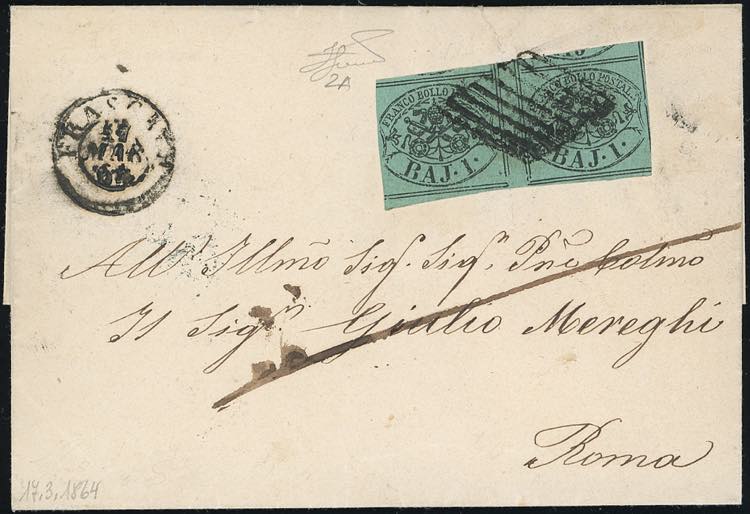 2A
FRANCO BOLLO
BAJ. 1.
FRANCO BOLLO POSTALE
BAJ. 1.
FRASCATI
17
MAR
64
All' Illmo Sig. Sig. Pne Colmo
Il Sigr. Giulio Mereghi
Roma
17.3.1864